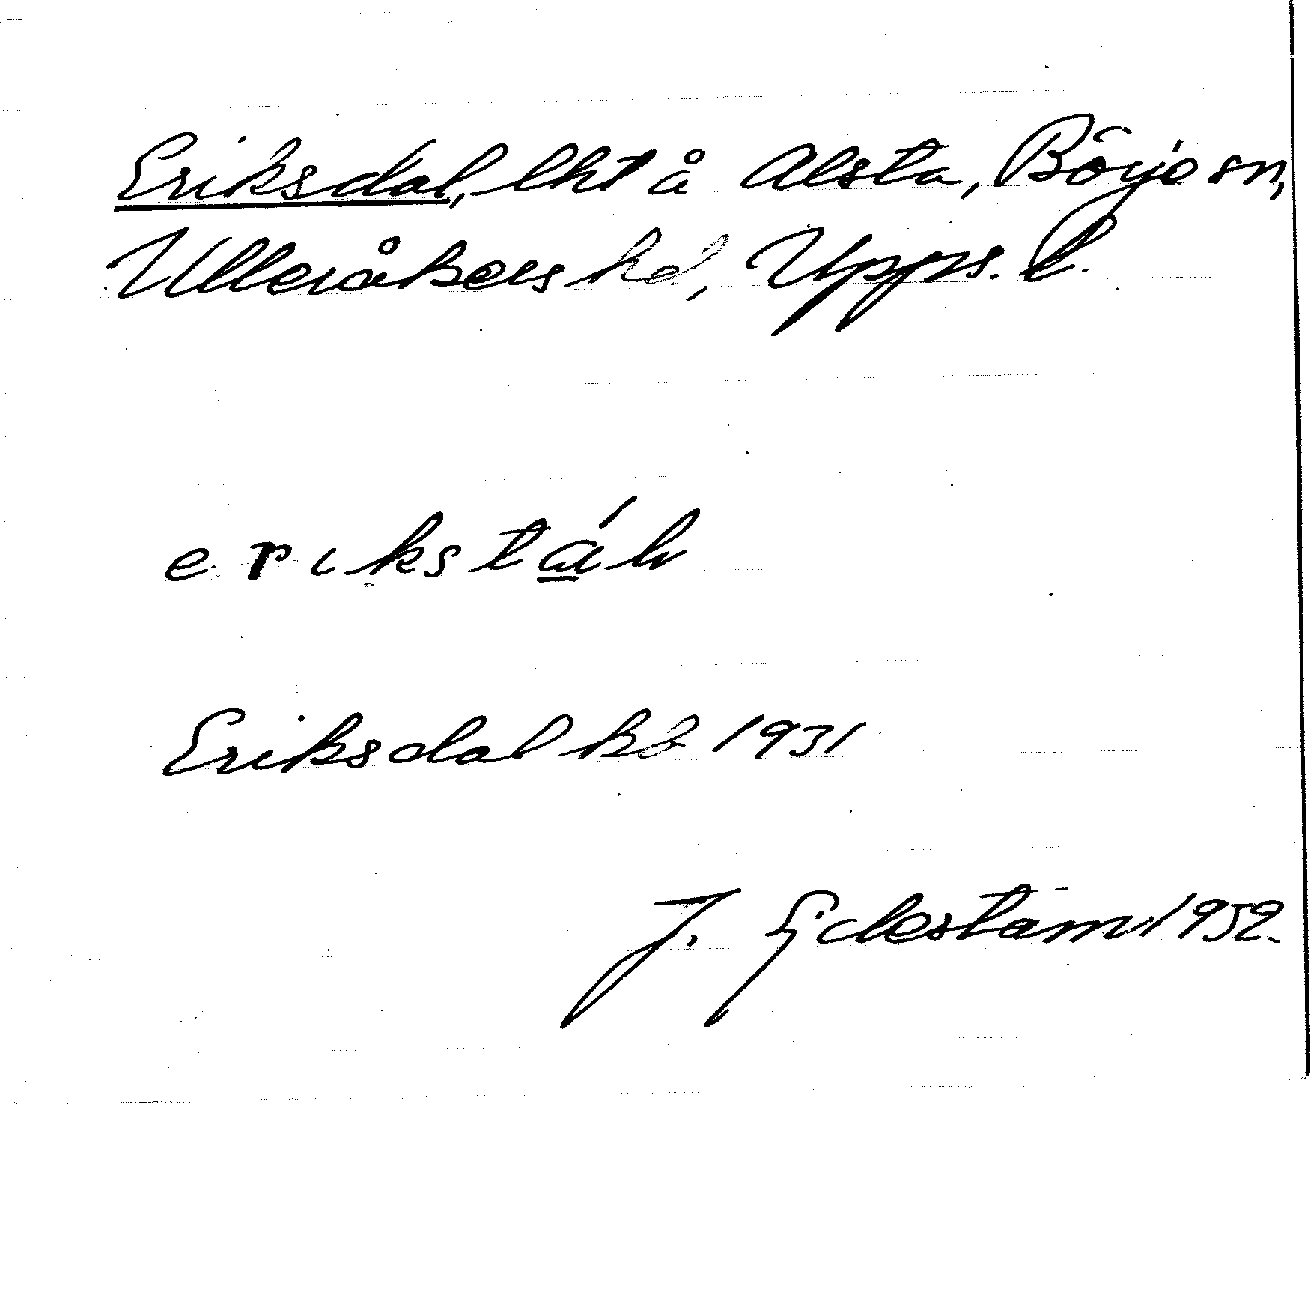 Eriksdal, lht å Alsta, Börje sn,
Ulleråkers hd, Upps. l.
erikstáh
Eriksdal kb 1931
J. Ejdestam 1952.